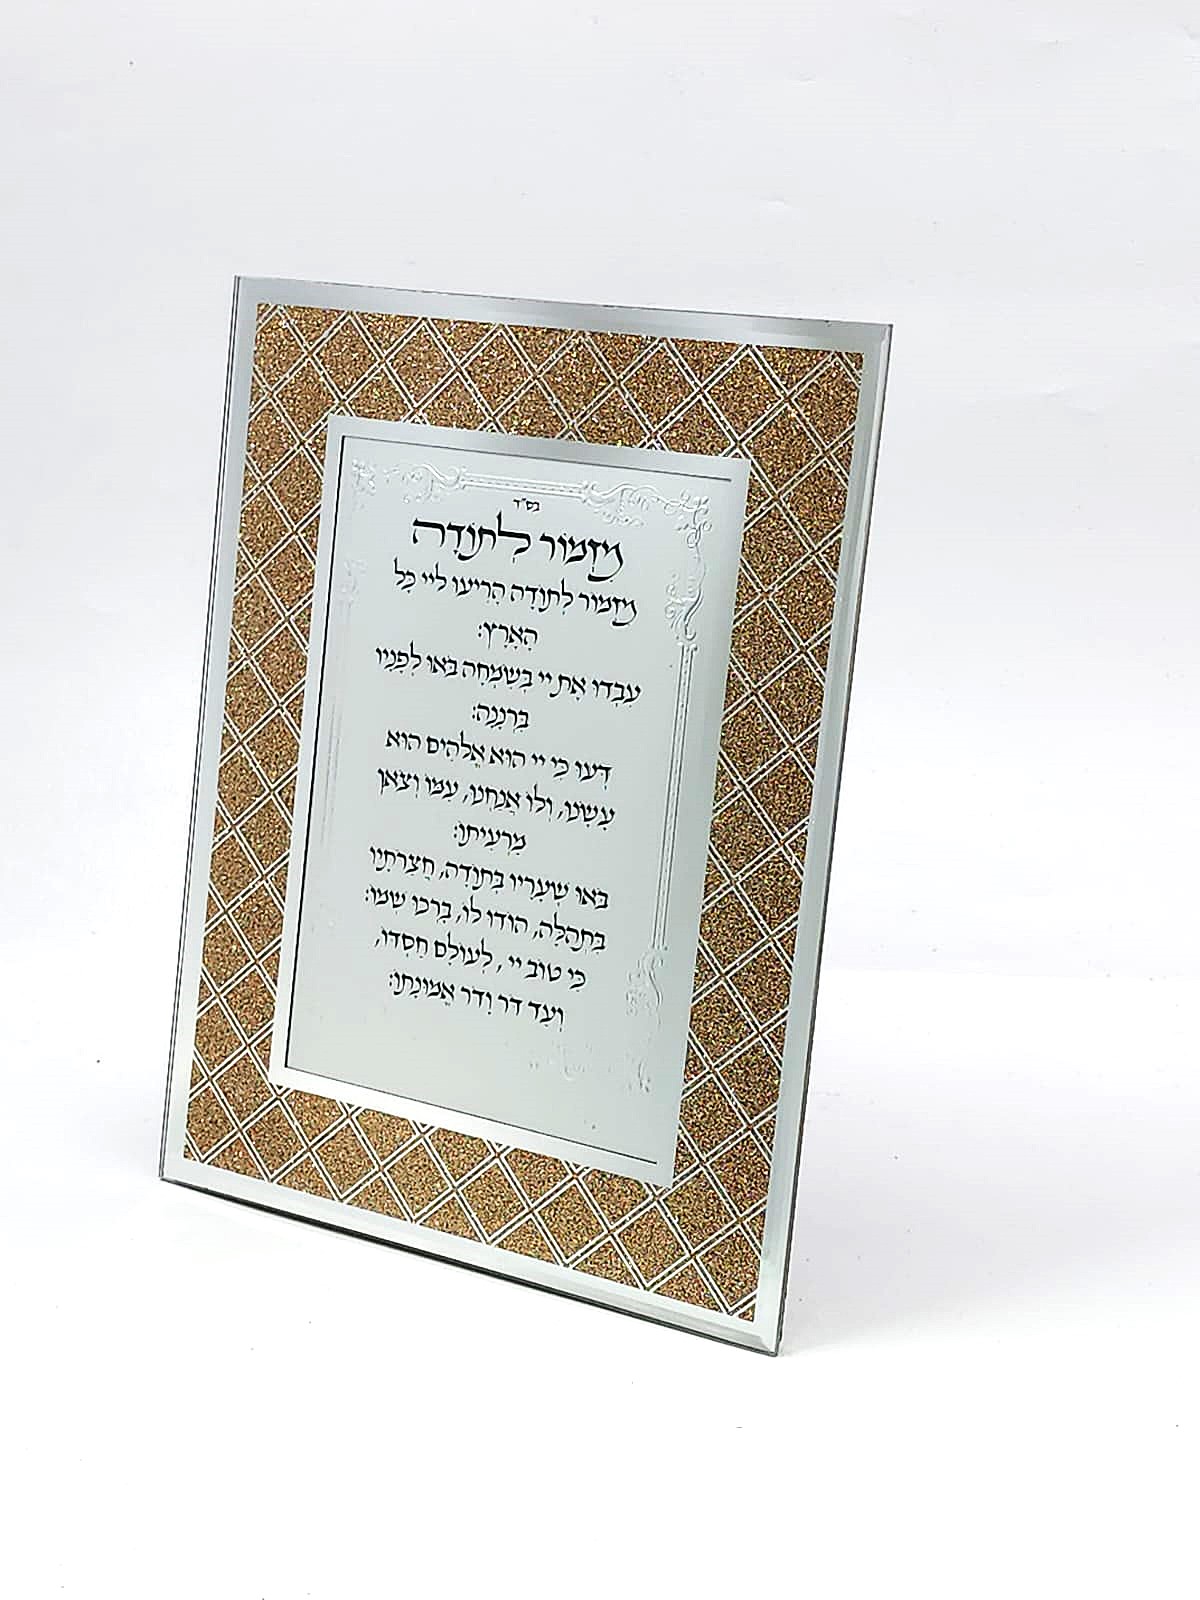 בס"ד
מִזְמור לְתוֹדָה
מִזְמור לְתוֹדָה הָרִיעוּ לַיי כָּל
הָאָרֶץ:
עִבְדוּ אֶת יי בְּשִׂמְחָה בֹּאוּ לְפָנָיו
בִּרְנָנָה:
דְּעוּ כִּי יי הוּא אֱלֹהִים הוּא
עָשָׂנוּ, וְלוֹ אֲנַחְנוּ, עַמּוֹ וְצֹאן
מַרְעִיתוֹ:
בֹּאוּ שְׁעָרָיו בְּתוֹדָה, חֲצֵרֹתָיו
בִּתְהִלָּה, הוֹדוּ לוֹ, בָּרְכוּ שְׁמוֹ:
כִּי טוֹב יי, לְעוֹלָם חַסְדּוֹ,
וְעַד דֹּר וָדֹר אֱמוּנָתוֹ: